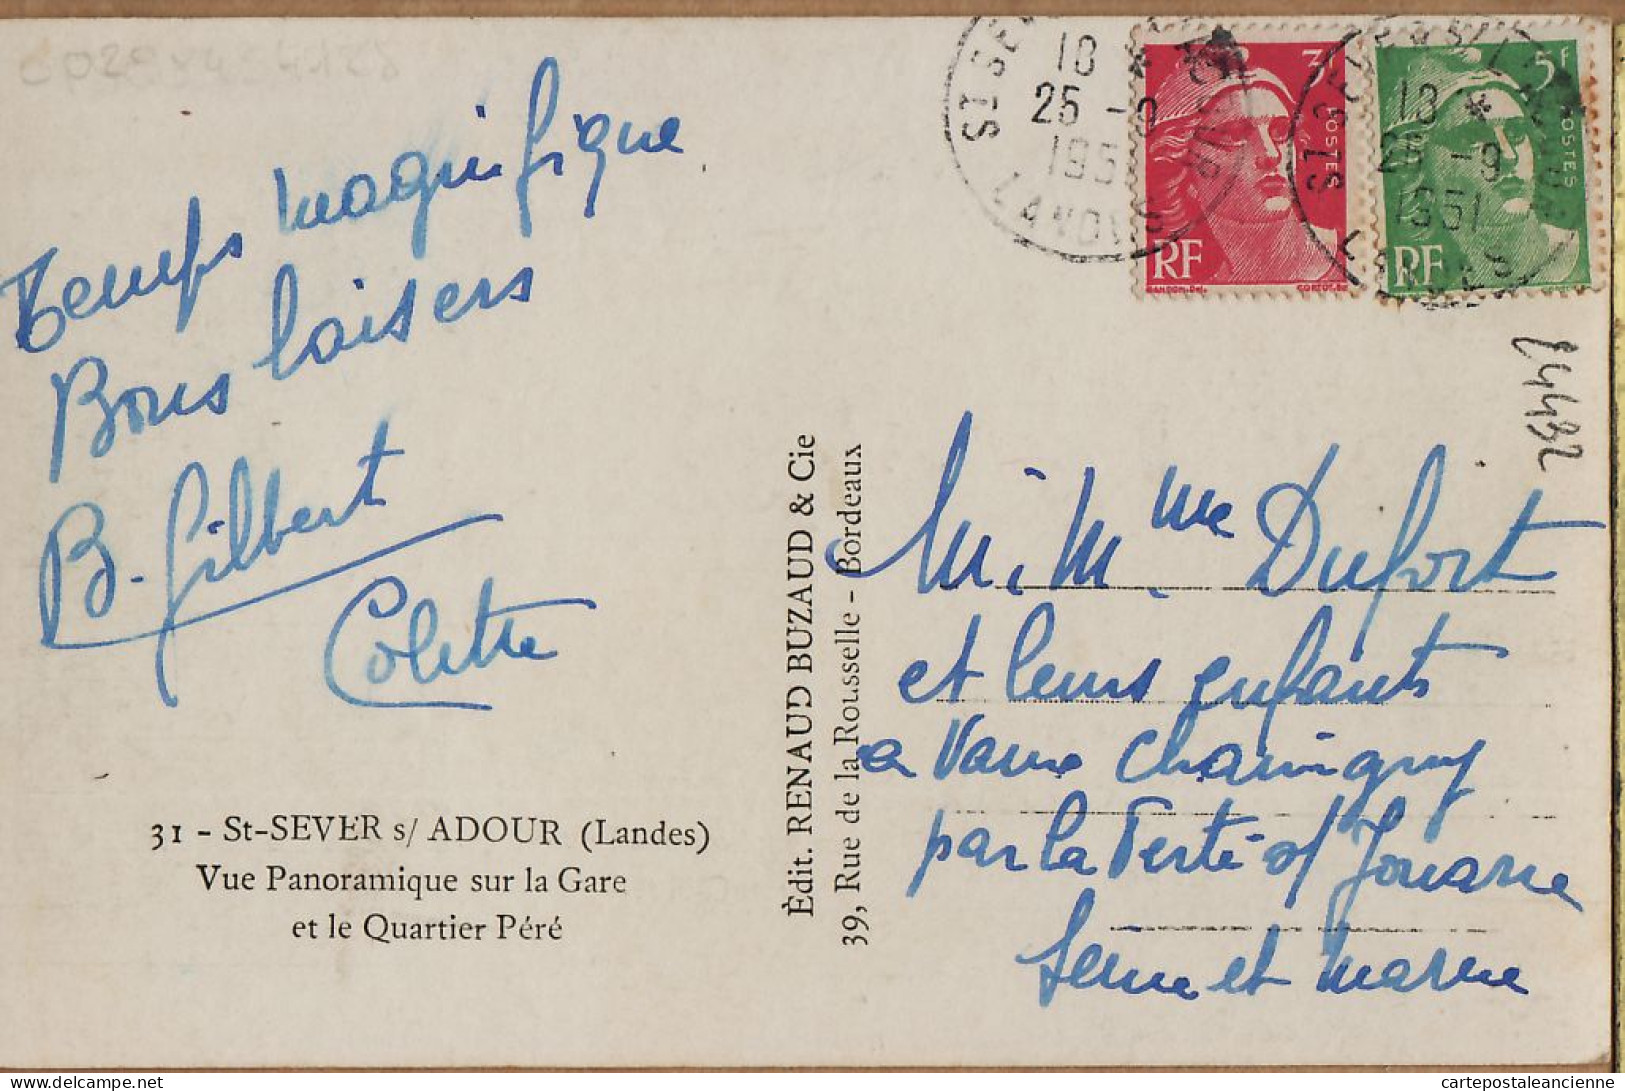 Temps magnifique
Bons baisers
B. Gilbert
Colette
31 - St-SEVER s/ ADOUR (Landes)
Vue Panoramique sur la Gare
et le Quartier Péré
Èdit. RENAUD BUZAUD & Cie
39, Rue de la Rousselle - Bordeaux
18 *
25 -9
195
LANDES
3F
POSTES
RF
GANDON.Del.
CORTOT.Sc
ST SEVER
18 *
25 -9
1951
LANDES
5F
POSTES
RF
14432
M. Mme Dufort
et leurs enfants
a Vaux Chavigny
par la Ferté s/ Jouarre
Seine et Marne
delcampe.net
cartepostaleancienne